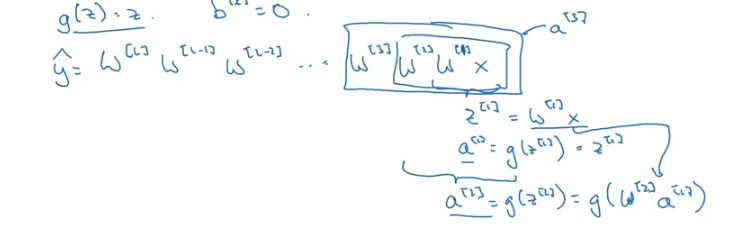 g(z) = z. b^[l] = 0.
ŷ = W^[L] W^[L-1] W^[L-2] ... W^[3] W^[2] W^[1] x
a^[3]
z^[1] = W^[1] x
a^[1] = g(z^[1]) = z^[1]
a^[2] = g(z^[2]) = g(W^[2] a^[1])